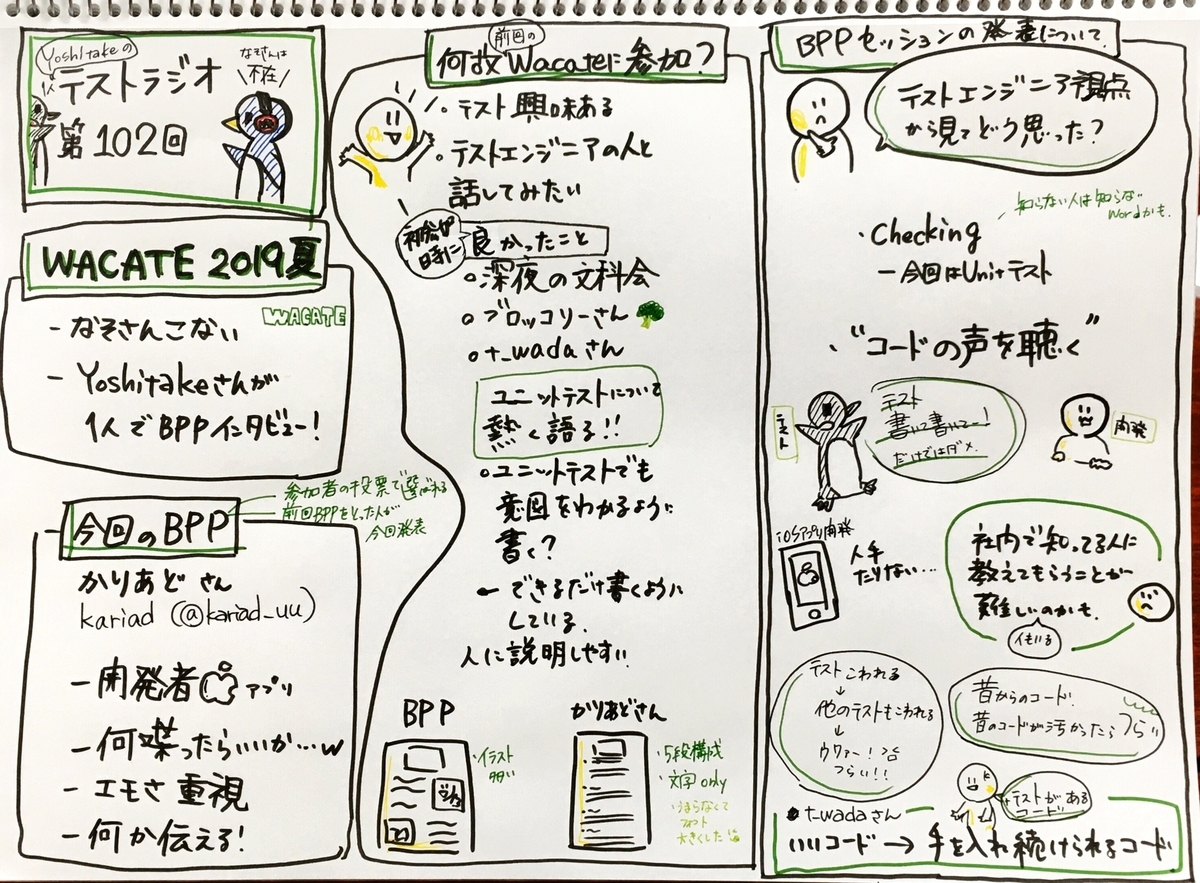 Yoshitakeの
1人
テストラジオ
第102回
なそさんは
不在
WACATE 2019夏
WACATE
- なそさんこない
- Yoshitakeさんが
1人でBPPインタビュー!
参加者の投票で選ばれる
前回BPPをとった人が
今回発表
今回のBPP
かりあどさん
kariad (@kariad_uu)
- 開発者 アプリ
- 何喋ったらいいか…w
- エモさ重視
- 何か伝える!
前回の
何故Wacateに参加?
テスト興味ある
テストエンジニアの人と
話してみたい
初参加
時に
良かったこと
深夜の文科会
ブロッコリーさん
t_wadaさん
ユニットテストについて
熱く語る!!
ユニットテストでも
意図をわかるように
書く?
- できるだけ書くように
している.
人に説明しやすい
BPP
・イラスト
多い
かりあどさん
・5段構成
・文字only
うまらなくて
フォント
大きくした
BPPセッションの発表について
テストエンジニア視点
から見てどう思った?
知らない人は知らな
wordかも.
・Checking
- 今回はUnitテスト
・"コードの声を聴く"
テスト
テスト
書いて書いてー!
だけではダメ.
開発
iOSアプリ開発
人手
たりない…
社内で知ってる人に
教えてもらうことが
難しいのかも.
人もいる
テストこわれる
↓
他のテストもこわれる
↓
ウワァー!
つらい!!
昔からのコード.
昔のコードが活かったらつらい
テストがある
コード
t_wadaさん
いいコード→手を入れ続けられるコード